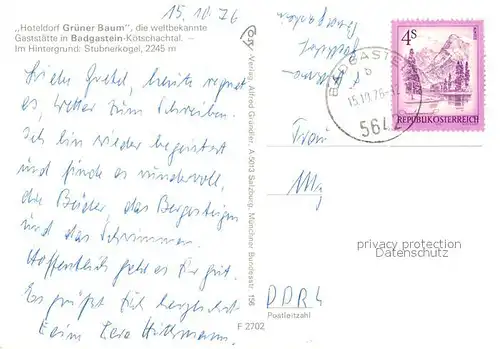 15.10.76
„Hoteldorf Grüner Baum“, die weltbekannte
Gaststätte in Badgastein-Kötschachtal. —
Im Hintergrund: Stubnerkogel, 2245 m
Liebe Gretel, heute regnet
es, Wetter zum Schreiben.
Ich bin wieder begeistert
und finde es wundervoll,
die Bäder, das Bergsteigen
und das Schwimmen.
Hoffentlich geht es Dir gut.
Es grüßt Dich herzlichst
Deine
Verlag Alfred Gründler, A 5013 Salzburg, Münchner Bundesstr. 156
F 2702
BADGASTEIN
b
15.10.76-12
5642
4S
REPUBLIK ÖSTERREICH
Frau
privacy protection
Datenschutz
DDR
Postleitzahl